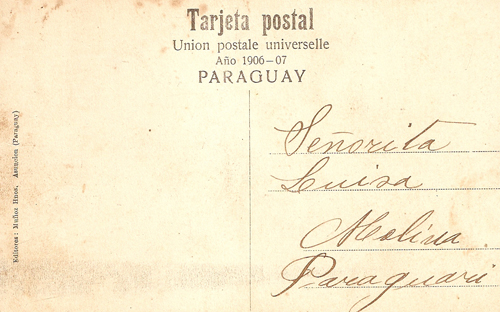 Tarjeta postal
Union postale universelle
Año 1906-07
PARAGUAY
Editores: Muñoz Hnos. Asuncion (Paraguay)
Señorita
Luisa
Molina
Paraguari